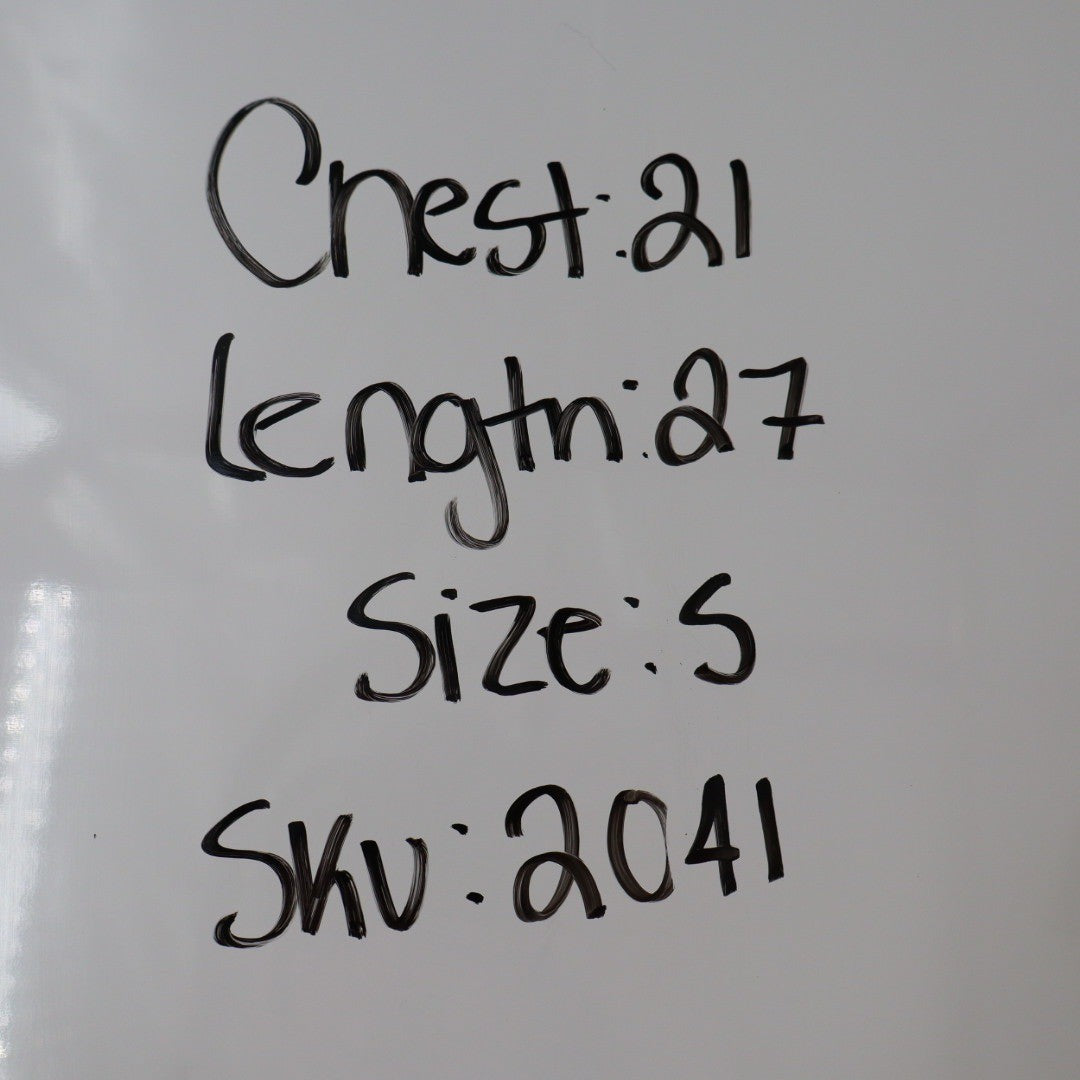 Chest: 21
Length: 27
Size: S
SKU: 2041